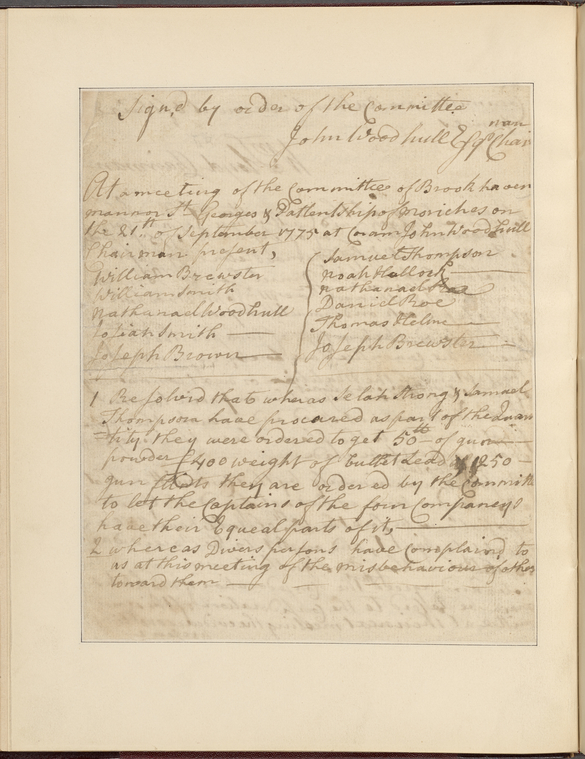 Sign,d by order of the Committee
John Woodhull Esqr Chair
man
At a meeting of the Committee of Brookhaven
mannor St Georges & Pattentship of moriches on
the 21th of September 1775 at Coram John Woodhull
Chairman present,
William Brewster
William Smith
Nathanael Woodhull
Josiah Smith
Joseph Brown
Samuel Thompson
Noah Hallock
nathanael Roe
Daniel Roe
Thomas Helme
Joseph Brewster
1 Resolved that wheras Selah Strong & Samuel
Thompson have procured as part of the Quan
=tity they were ordered to get 50 lb of gun
powder 400 weight of bullet Lead 1250
gun flints they are ordered by the Committe
to let the Captains of the four Companeys
have their Equeal parts of it,
2 whereas Divers persons have Complained to
us at this meeting of the misbehaviour of others
toward them